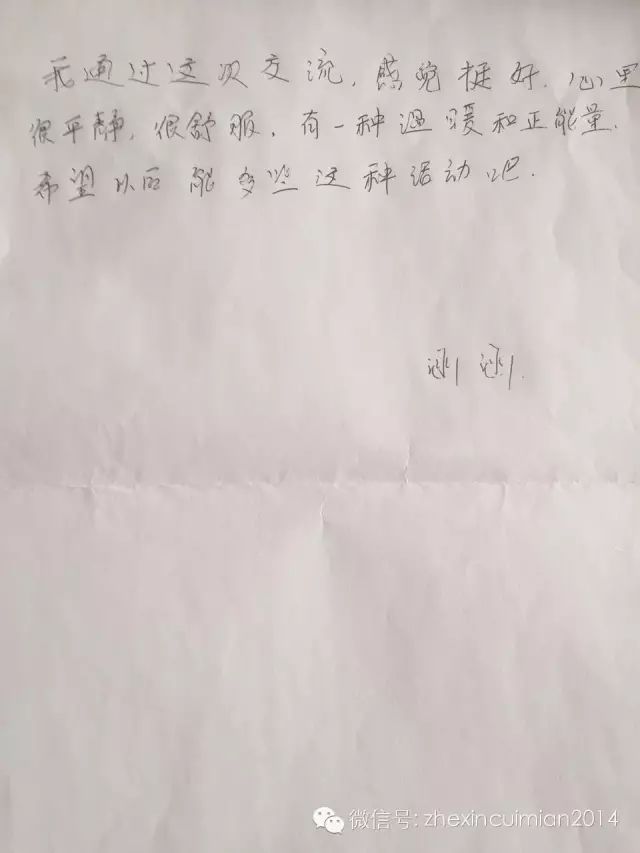 我通过这次交流，感觉挺好，心里
很平静，很舒服，有一种温暖和正能量，
希望以后能多些这种活动吧.
微信号: zhexincuimian2014